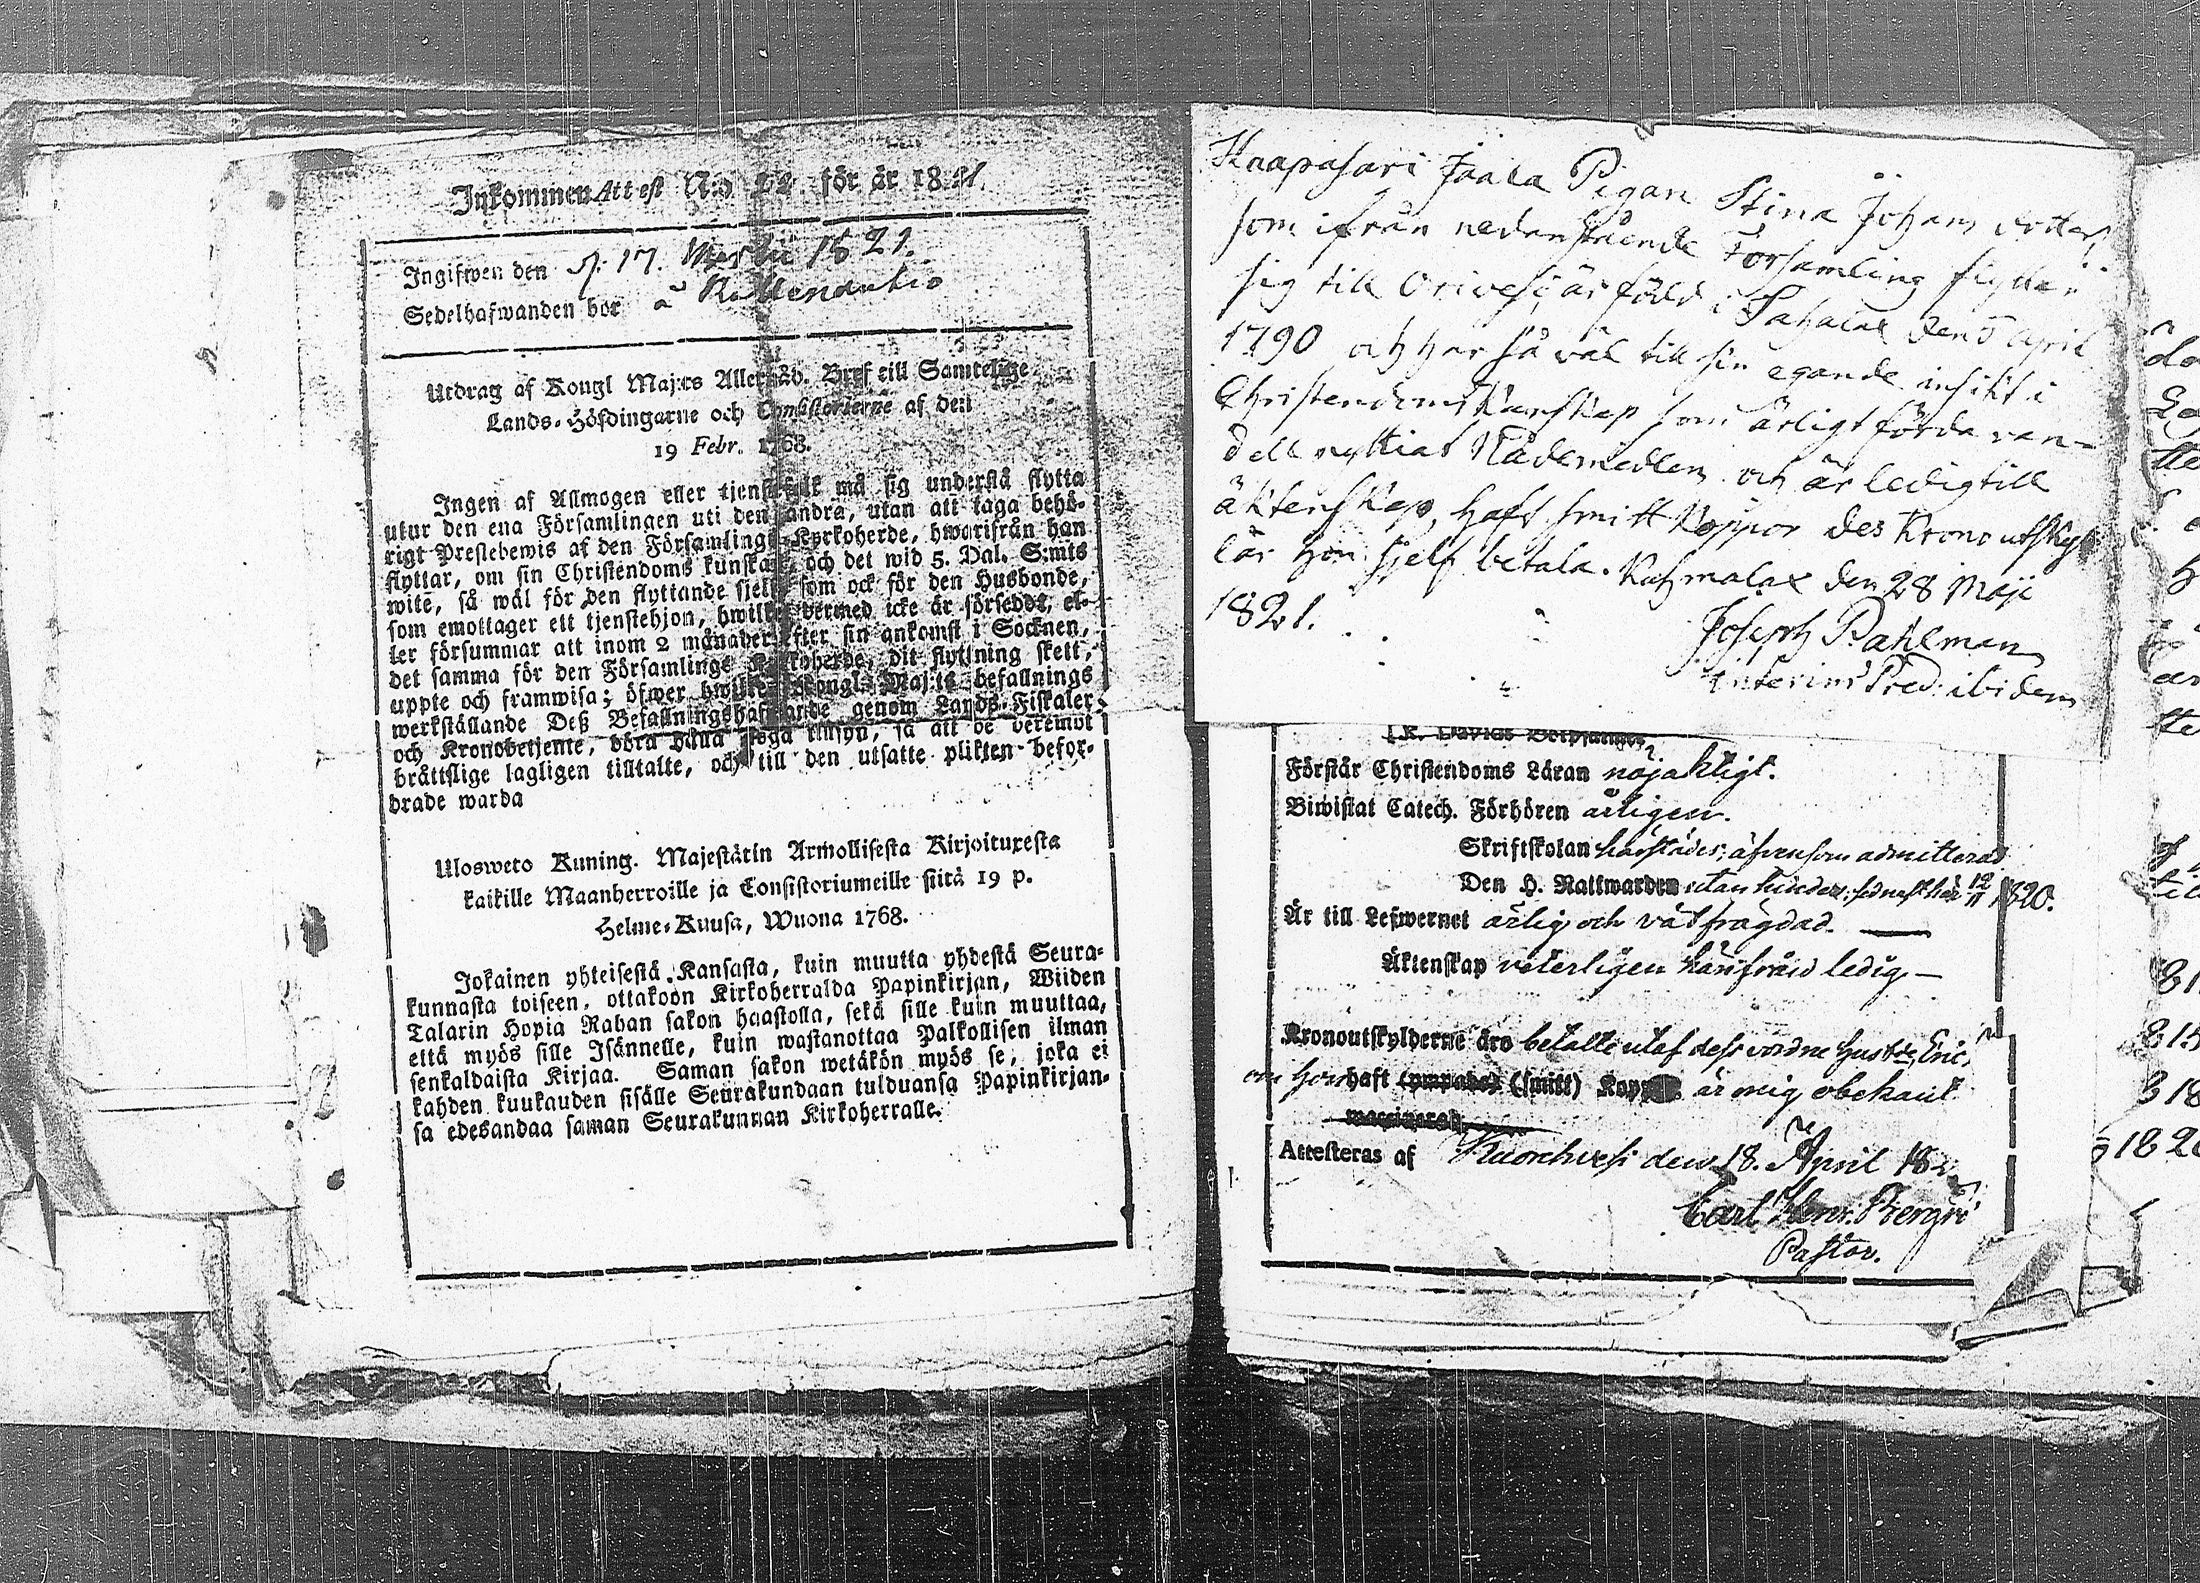 Inkommen Attest N:o 22 för år 1821.
Ingifwen den d. 17. Martii 1821.
Sedelhafwanden bor å
Utdrag af Kongl Maj:ts Allernåd. Bref till Samtelige
Lands-Höfdingarne och Consistorierne af den
19 Febr. 1768.
Ingen af Allmogen eller tjenstefolk må sig understå flytta
utur den ena Församlingen uti den andra, utan att taga behö-
rigt Prestebewis af den Församlings Kyrkoherde, hwarifrån han
flyttar, om sin Christendoms kunskap, och det wid 5. Dal. S:mts
wite, så wäl för den flyttande sjelf som ock för den Husbonde,
som emottager ett tjenstehjon, hwilket dermed icke är försedde, el-
ler försummar att inom 2 månader efter sin ankomst i Socknen,
det samma för den Församlings Kyrkoherde, dit flyttning skett,
uppte och framwisa; öfwer hwilket Kongl. Maj:ts befallnings
werkställande Deß Befallningshafwande genom Lands-Fiskaler
och Kronobetjente, böra hålla noga tillsyn, så att de deremot
bråttslige lagligen tilltalte, och till den utsatte plikten befor-
drade warda
Ulosweto Kuning. Majestätin Armollisesta Kirjoituxesta
kaikille Maanherroille ja Consistoriumeille siitä 19 p.
Helme-Kuusa, Wuona 1768.
Jokainen yhteisestä Kansasta, kuin muutta yhdestä Seura-
kunnasta toiseen, ottakoon Kirkoherralda Papinkirjan, Wiiden
Talarin Hopia Rahan sakon haastolla, sekä sille kuin muuttaa,
että myös sille Isännelle, kuin wastanottaa Palkollisen ilman
senkaldaista Kirjaa. Saman sakon wetäkön myös se, joka ei
kahden kuukauden sisälle Seurakundaan tulduansa Papinkirjan-
sa edesandaa saman Seurakunnan Kirkoherralle.
Haapasari Jaala Pigan Stina Johans dotter
som ifrån nedanstående Forsamling flyttar
sig till Orivesi, är född i Sahalax den 5 April
1790 och har så väl till sin egande insikt i
Christendoms Kunskap som ärligt förda van-
dell nyttiat Nådemedlen och är ledig till
äktenskap, haft smitt Koppor des Krono utskyld
lär hon sjelf betala. Kuhmalax den 28 Maji
1821.
Joseph Pahlman
interims Pred: ibidem
Förstår Christendoms Läran nöjaktigt.
Biwistat Catech. Förhören årligen.
Skriftskolan härstädes; äfvensom admitterad
Den H. Nattwarden utan hinder: sednast här 12/11 1820.
Är till Lefwernet ärlig och vätfrägdad.
Äktenskap veterligen härifrån ledig
Kronoutskylderne äro betalte utaf dess vordne Husb:de Eric,
om Hon haft (ympade) (smitt) Koppor är mig obekant
Attesteras af Kuorehvesi den 18. April 182
Carl Henr. Bergroth
Pastor.